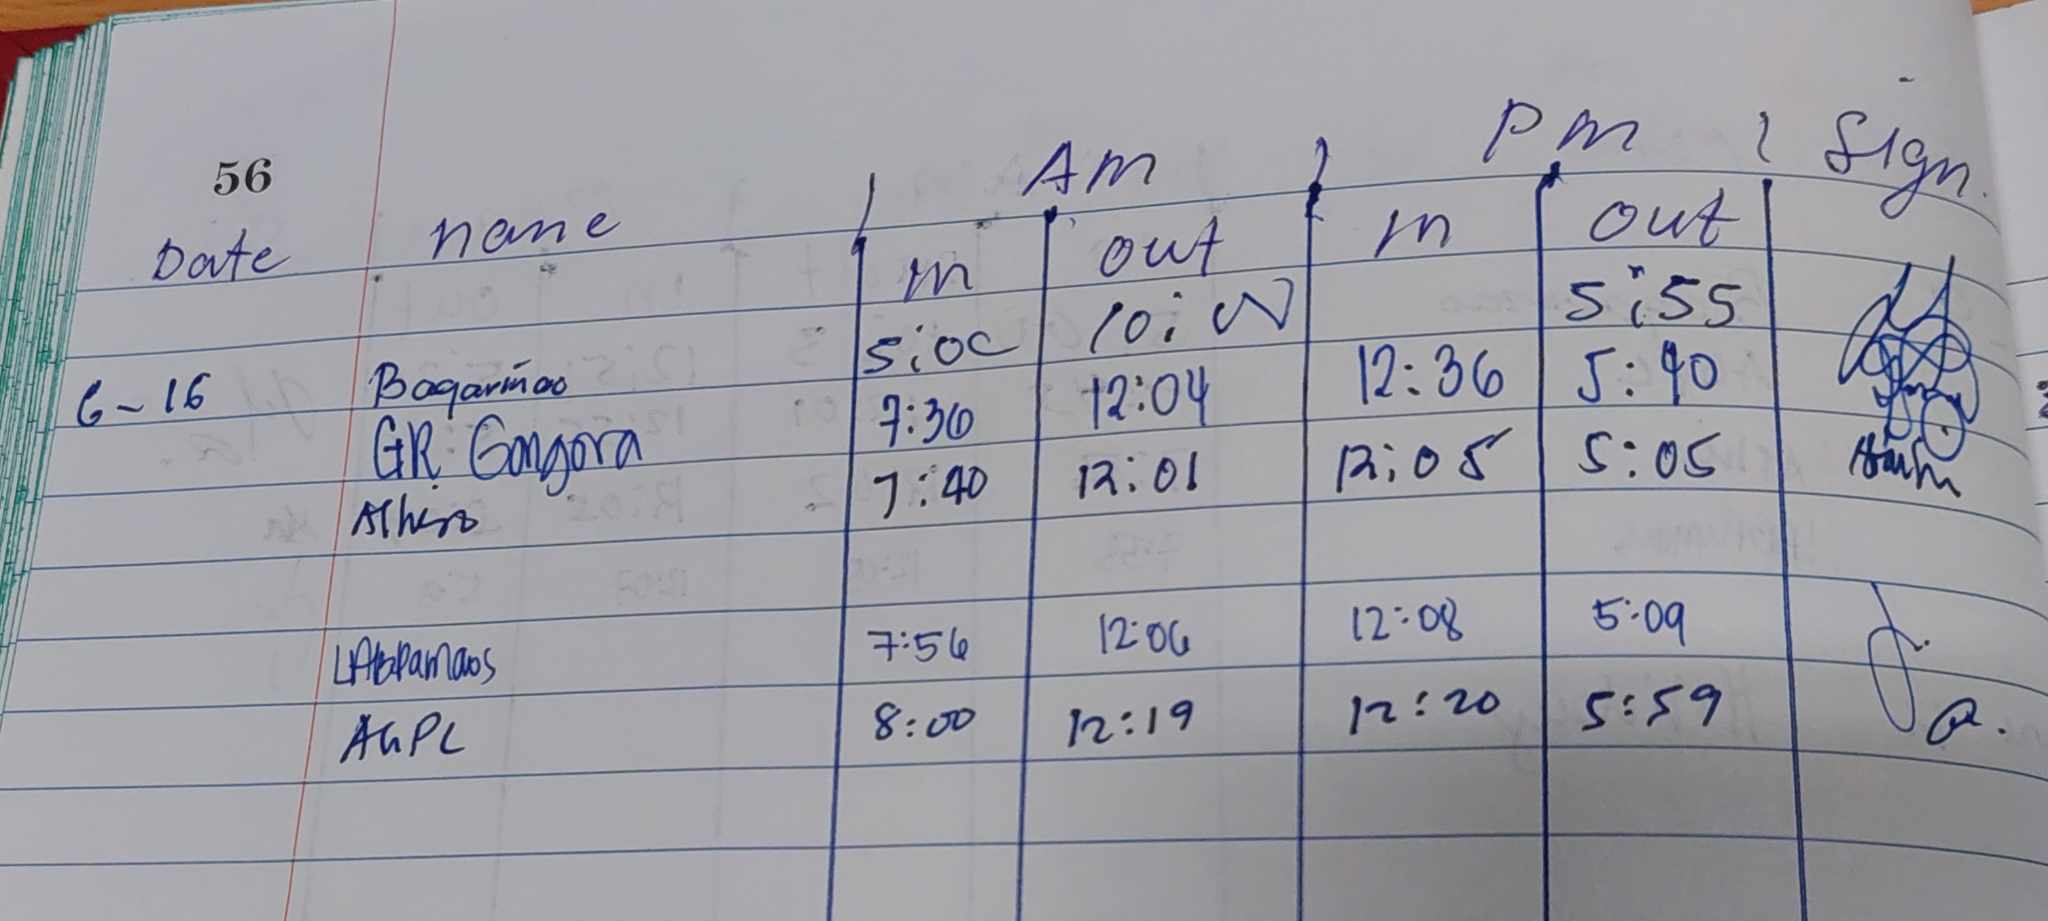 56
Am Pm Sign.
Date name in out in out
6-16 Bagariñao 5:00 10:00 5:55
GR. Gongora 7:36 12:04 12:36 5:40
7:40 12:01 12:05 5:05
7:56 12:06 12:08 5:09
AGPL 8:00 12:19 12:20 5:59